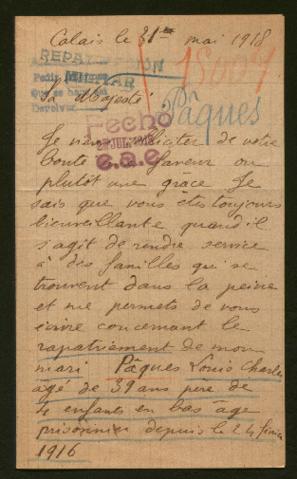 Calais le 31 mai 1918
REPATRIACIÓN
MILITAR
Sa Majesté
Pâques
Fecho
JUL. 1918
Je viens solliciter de votre
bonté une faveur ou
plutôt une grâce Je
sais que vous êtes toujours
bienveillante quand il
s'agit de rendre service
à des familles qui se
trouvent dans la peine
et me permets de vous
écrire concernant le
rapatriement de mon
mari Pâques Louis Charles
agé de 39 ans père de
4 enfants en bas âge
prisonnier depuis le 24 février
1916